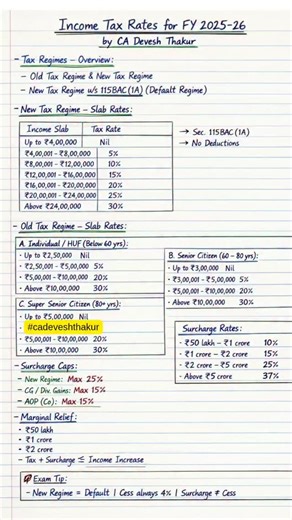 Income Tax Rates for FY 2025-26
by CA Devesh Thakur
- Tax Regimes – Overview:
- Old Tax Regime & New Tax Regime
- New Tax Regime u/s 115BAC(1A) (Default Regime)
- New Tax Regime – Slab Rates:
Income Slab Tax Rate
Up to ₹4,00,000 Nil
₹4,00,001 – ₹8,00,000 5%
₹8,00,001 – ₹12,00,000 10%
₹12,00,001 – ₹16,00,000 15%
₹16,00,001 – ₹20,00,000 20%
₹20,00,001 – ₹24,00,000 25%
Above ₹24,00,000 30%
→ Sec. 115BAC(1A)
→ No Deductions
- Old Tax Regime – Slab Rates:
A. Individual / HUF (Below 60 yrs):
- Up to ₹2,50,000 Nil
- ₹2,50,001 – ₹5,00,000 5%
- ₹5,00,001 – ₹10,00,000 20%
- Above ₹10,00,000 30%
B. Senior Citizen (60 – 80 yrs):
- Up to ₹3,00,000 Nil
- ₹3,00,001 – ₹5,00,000 5%
- ₹5,00,001 – ₹10,00,000 20%
- Above ₹10,00,000 30%
C. Super Senior Citizen (80+ yrs):
- Up to ₹5,00,000 Nil
#cadeveshthakur
- ₹5,00,001 – ₹10,00,000 20%
- Above ₹10,00,000 30%
Surcharge Rates:
- ₹50 lakh – ₹1 crore 10%
- ₹1 crore – ₹2 crore 15%
- ₹2 crore – ₹5 crore 25%
- Above ₹5 crore 37%
- Surcharge Caps:
- New Regime: Max 25%
- CG / Div. Gains: Max 15%
- AOP (Co): Max 15%
- Marginal Relief:
- ₹50 lakh
- ₹1 crore
- ₹2 crore
- Tax + Surcharge ≤ Income Increase
Exam Tip:
- New Regime = Default | Cess always 4% | Surcharge ≠ Cess